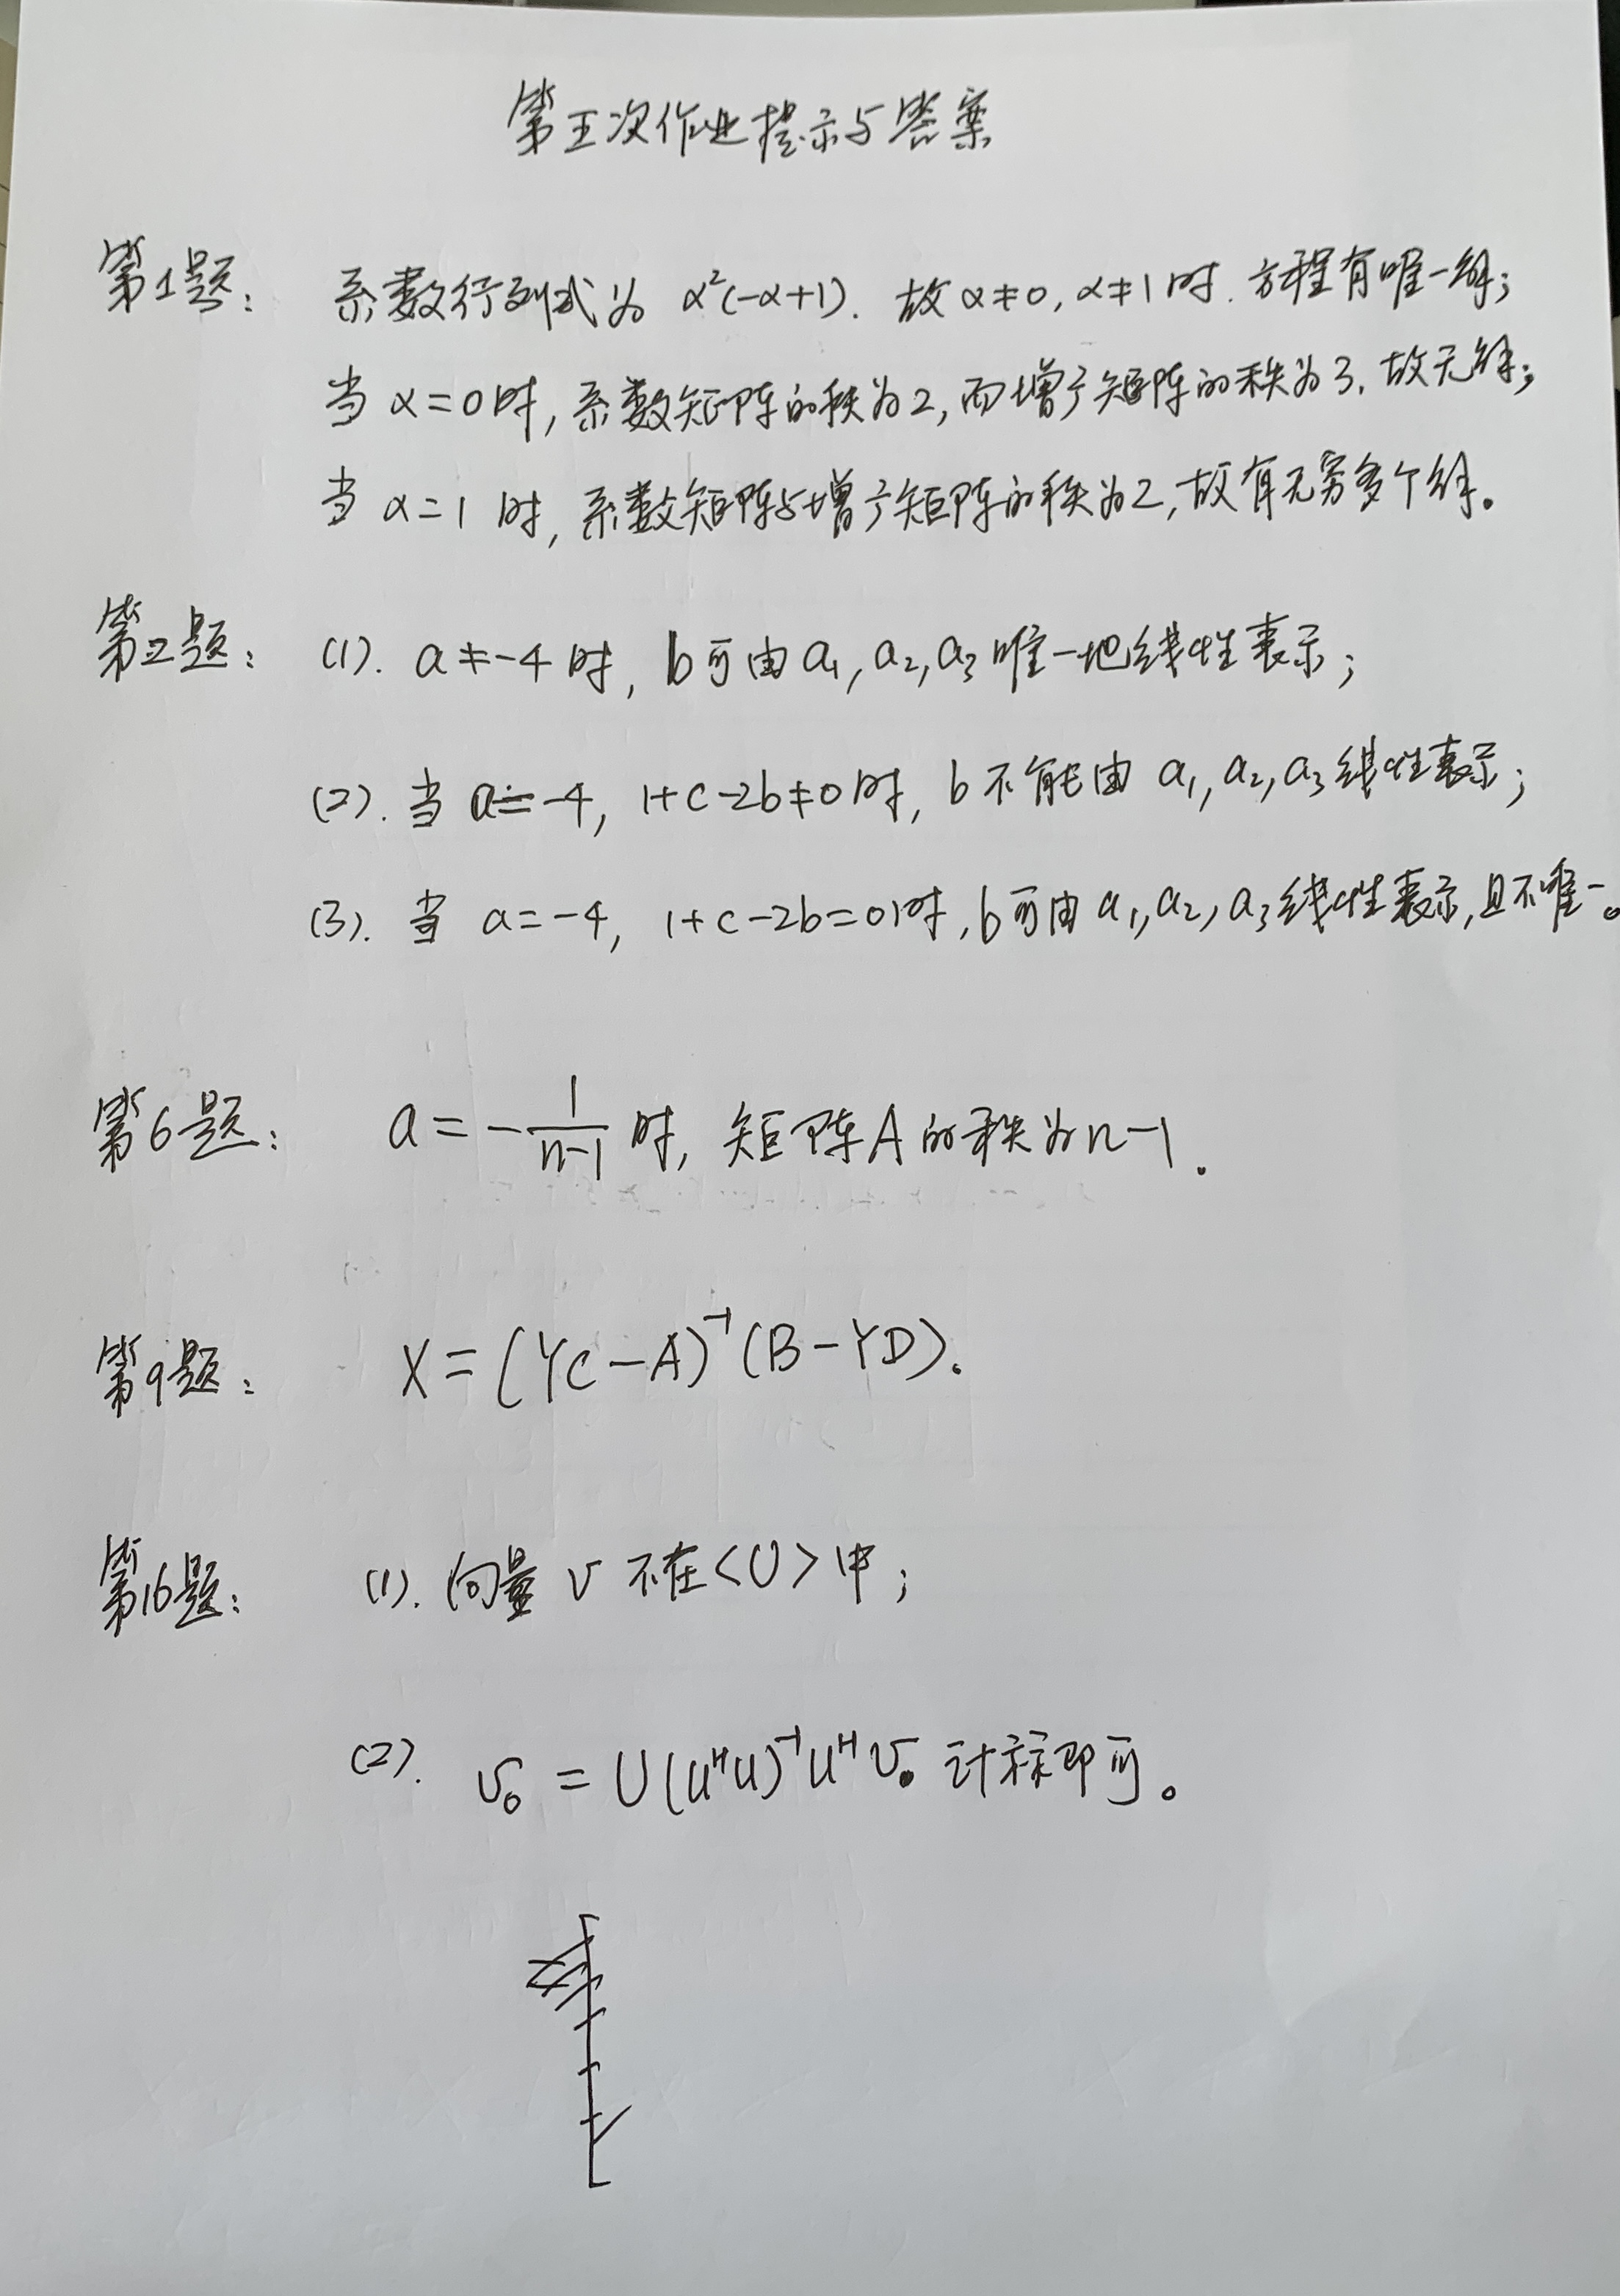 第五次作业提示与答案
第1题: 系数行列式为 α²(-α+1). 故 α≠0, α≠1 时. 方程有唯一解;
当 α=0 时, 系数矩阵的秩为2, 而增广矩阵的秩为3. 故无解;
当 α=1 时, 系数矩阵与增广矩阵的秩为2, 故有无穷多个解。
第2题: (1). a≠-4 时, b可由 a₁, a₂, a₃ 唯一地线性表示;
(2). 当 a=-4, 1+c-2b≠0 时, b 不能由 a₁, a₂, a₃ 线性表示;
(3). 当 a=-4, 1+c-2b=0 时, b可由 a₁, a₂, a₃ 线性表示, 且不唯一。
第6题: a=-\frac{1}{n-1} 时, 矩阵A的秩为n-1.
第9题: X=(YC-A)⁻¹(B-YD).
第16题: (1). 向量 v 不在<U>中;
(2). v₀ = U(UᴴU)⁻¹Uᴴv. 计算即可。